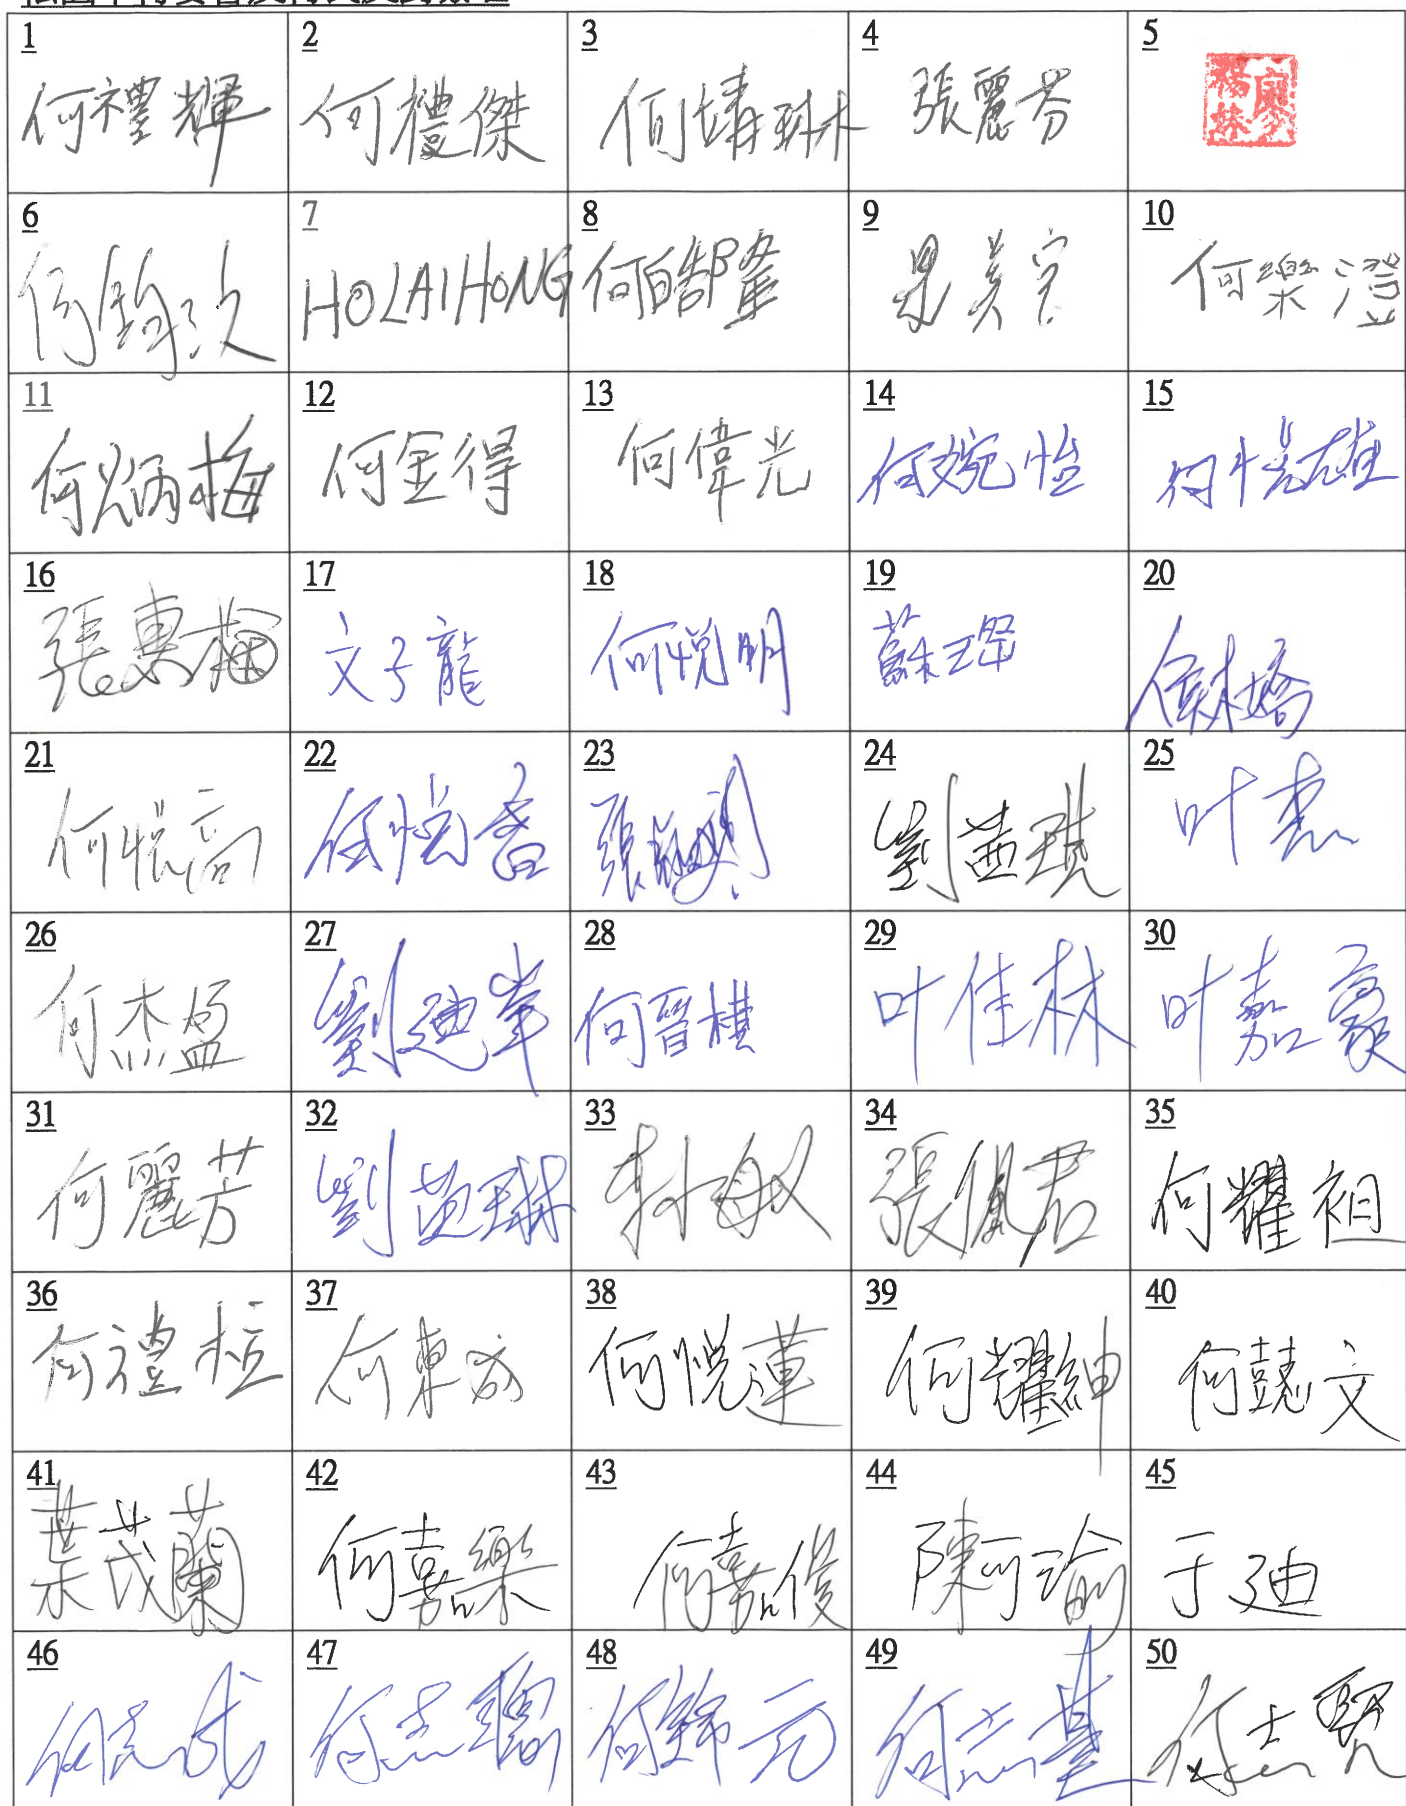 1
何禮輝
2
何禮傑
3
何婧琳
4
張麗芬
5
廖楊妹
6
7
HO LAI HONG
8
9
10
何樂澄
11
何炳梅
12
何金得
13
何偉光
14
何婉怡
15
何悅雄
16
張惠梅
17
文子龍
18
何悅明
19
20
21
何悅高
22
何悅
23
張
24
劉茜琪
25
叶杰
26
何杰盈
27
劉迪峯
28
何晉棋
29
叶佳林
30
叶嘉豪
31
何麗芳
32
劉茵琳
33
34
張佩君
35
何耀祖
36
何禮桓
37
何東
38
何悅蓮
39
何耀紳
40
何懿文
41
葉茂蘭
42
何嘉樂
43
何嘉俊
44
陳可瑜
45
于迪
46
何志成
47
何志聰
48
何錦元
49
何志基
50
何志賢